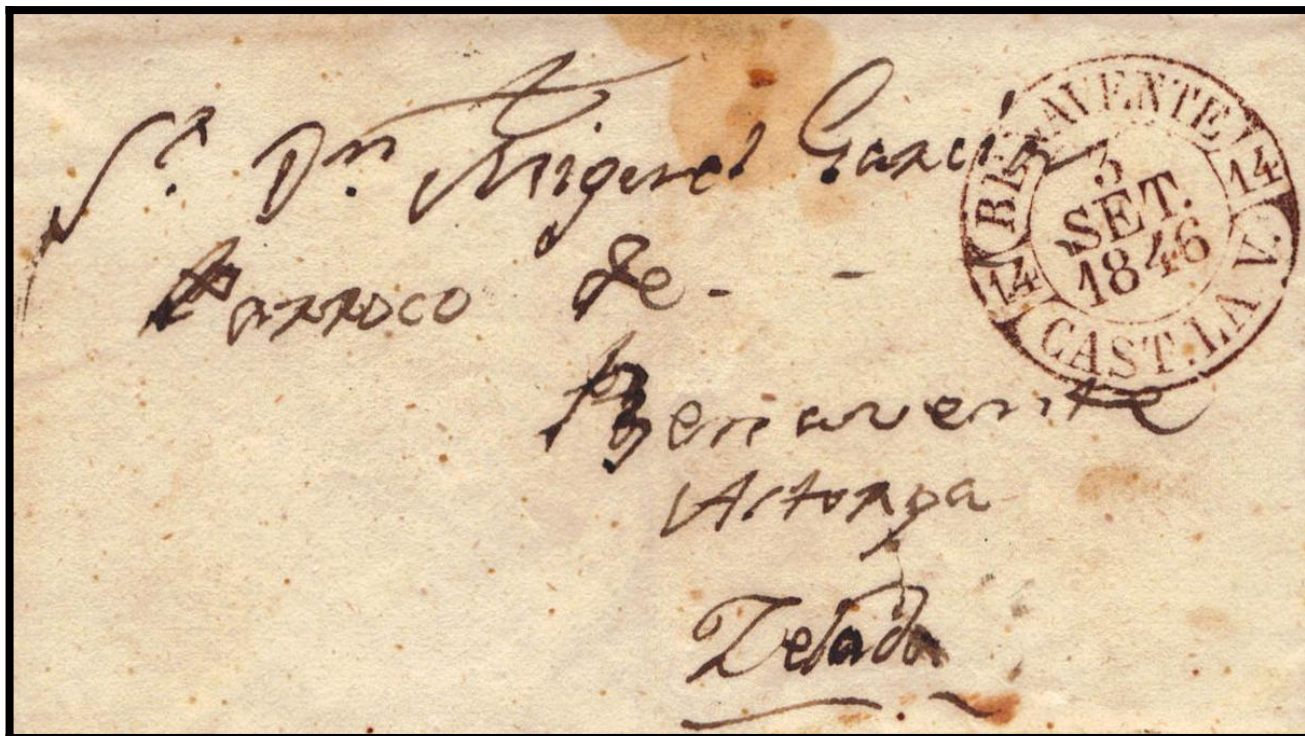 Sr. Dn. Miguel Garcia
Parroco de -  -
Benavente
Astorga
BENAVENTE
14
14
3
SET.
1846
CAST. LA V.